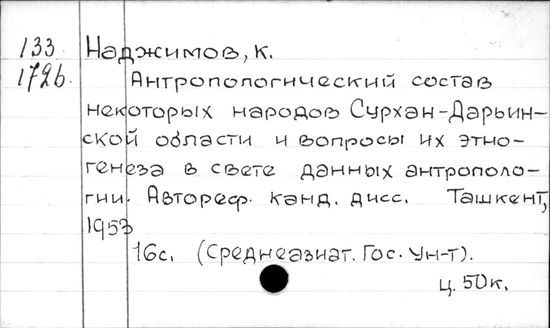 133 Наджимов, К.
172б. Антропологический состав
некоторых народов Сурхан-Дарьин-
ской области и вопросы их этно-
генеза в свете данных антрополо-
гии. Автореф. канд. дисс. Ташкент,
1953
16с. (Среднеазиат. Гос. Ун-т).
ц. 50к.